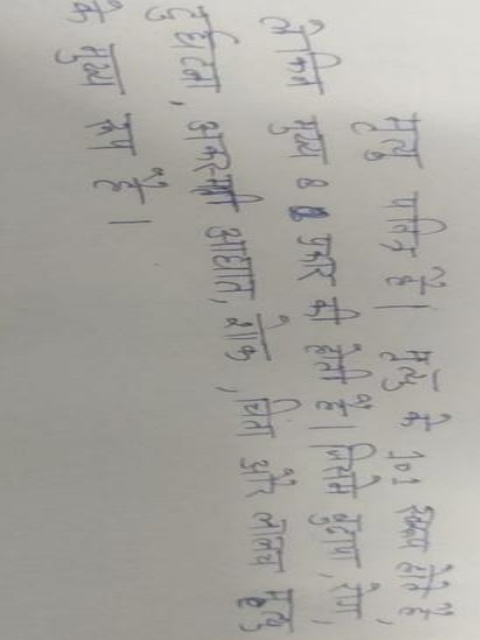 मृत्यु पवित्र है। मृत्यु के 101 स्वरूप होते है,
लेकिन मुख्य 8 प्रकार की होती है। जिसमे बुढ़ापा, रोग,
दुर्घटना, अकस्मती आघात, शोक, चिंता और लालच मृत्यु
के मुख्य रूप है।